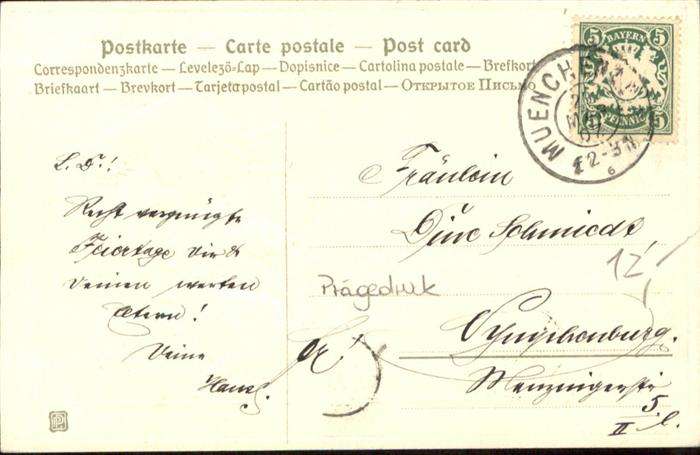 Postkarte — Carte postale — Post card
Correspondenzkarte — Levelező-Lap — Dopisnice — Cartolina postale — Brefkort
Briefkaart — Brevkort — Tarjeta postal — Cartão postal — Открытое Письмо
5 BAYERN 5
5 PFENNIG 5
MUENCHEN
L. D.!
Recht vergnügte
Feiertage Dir &
Deinen werten
Eltern!
Deine
Fräulein
Schmiedt
12,-
Prägedruk
Nymphenburg.
Menzingerstr
5
II